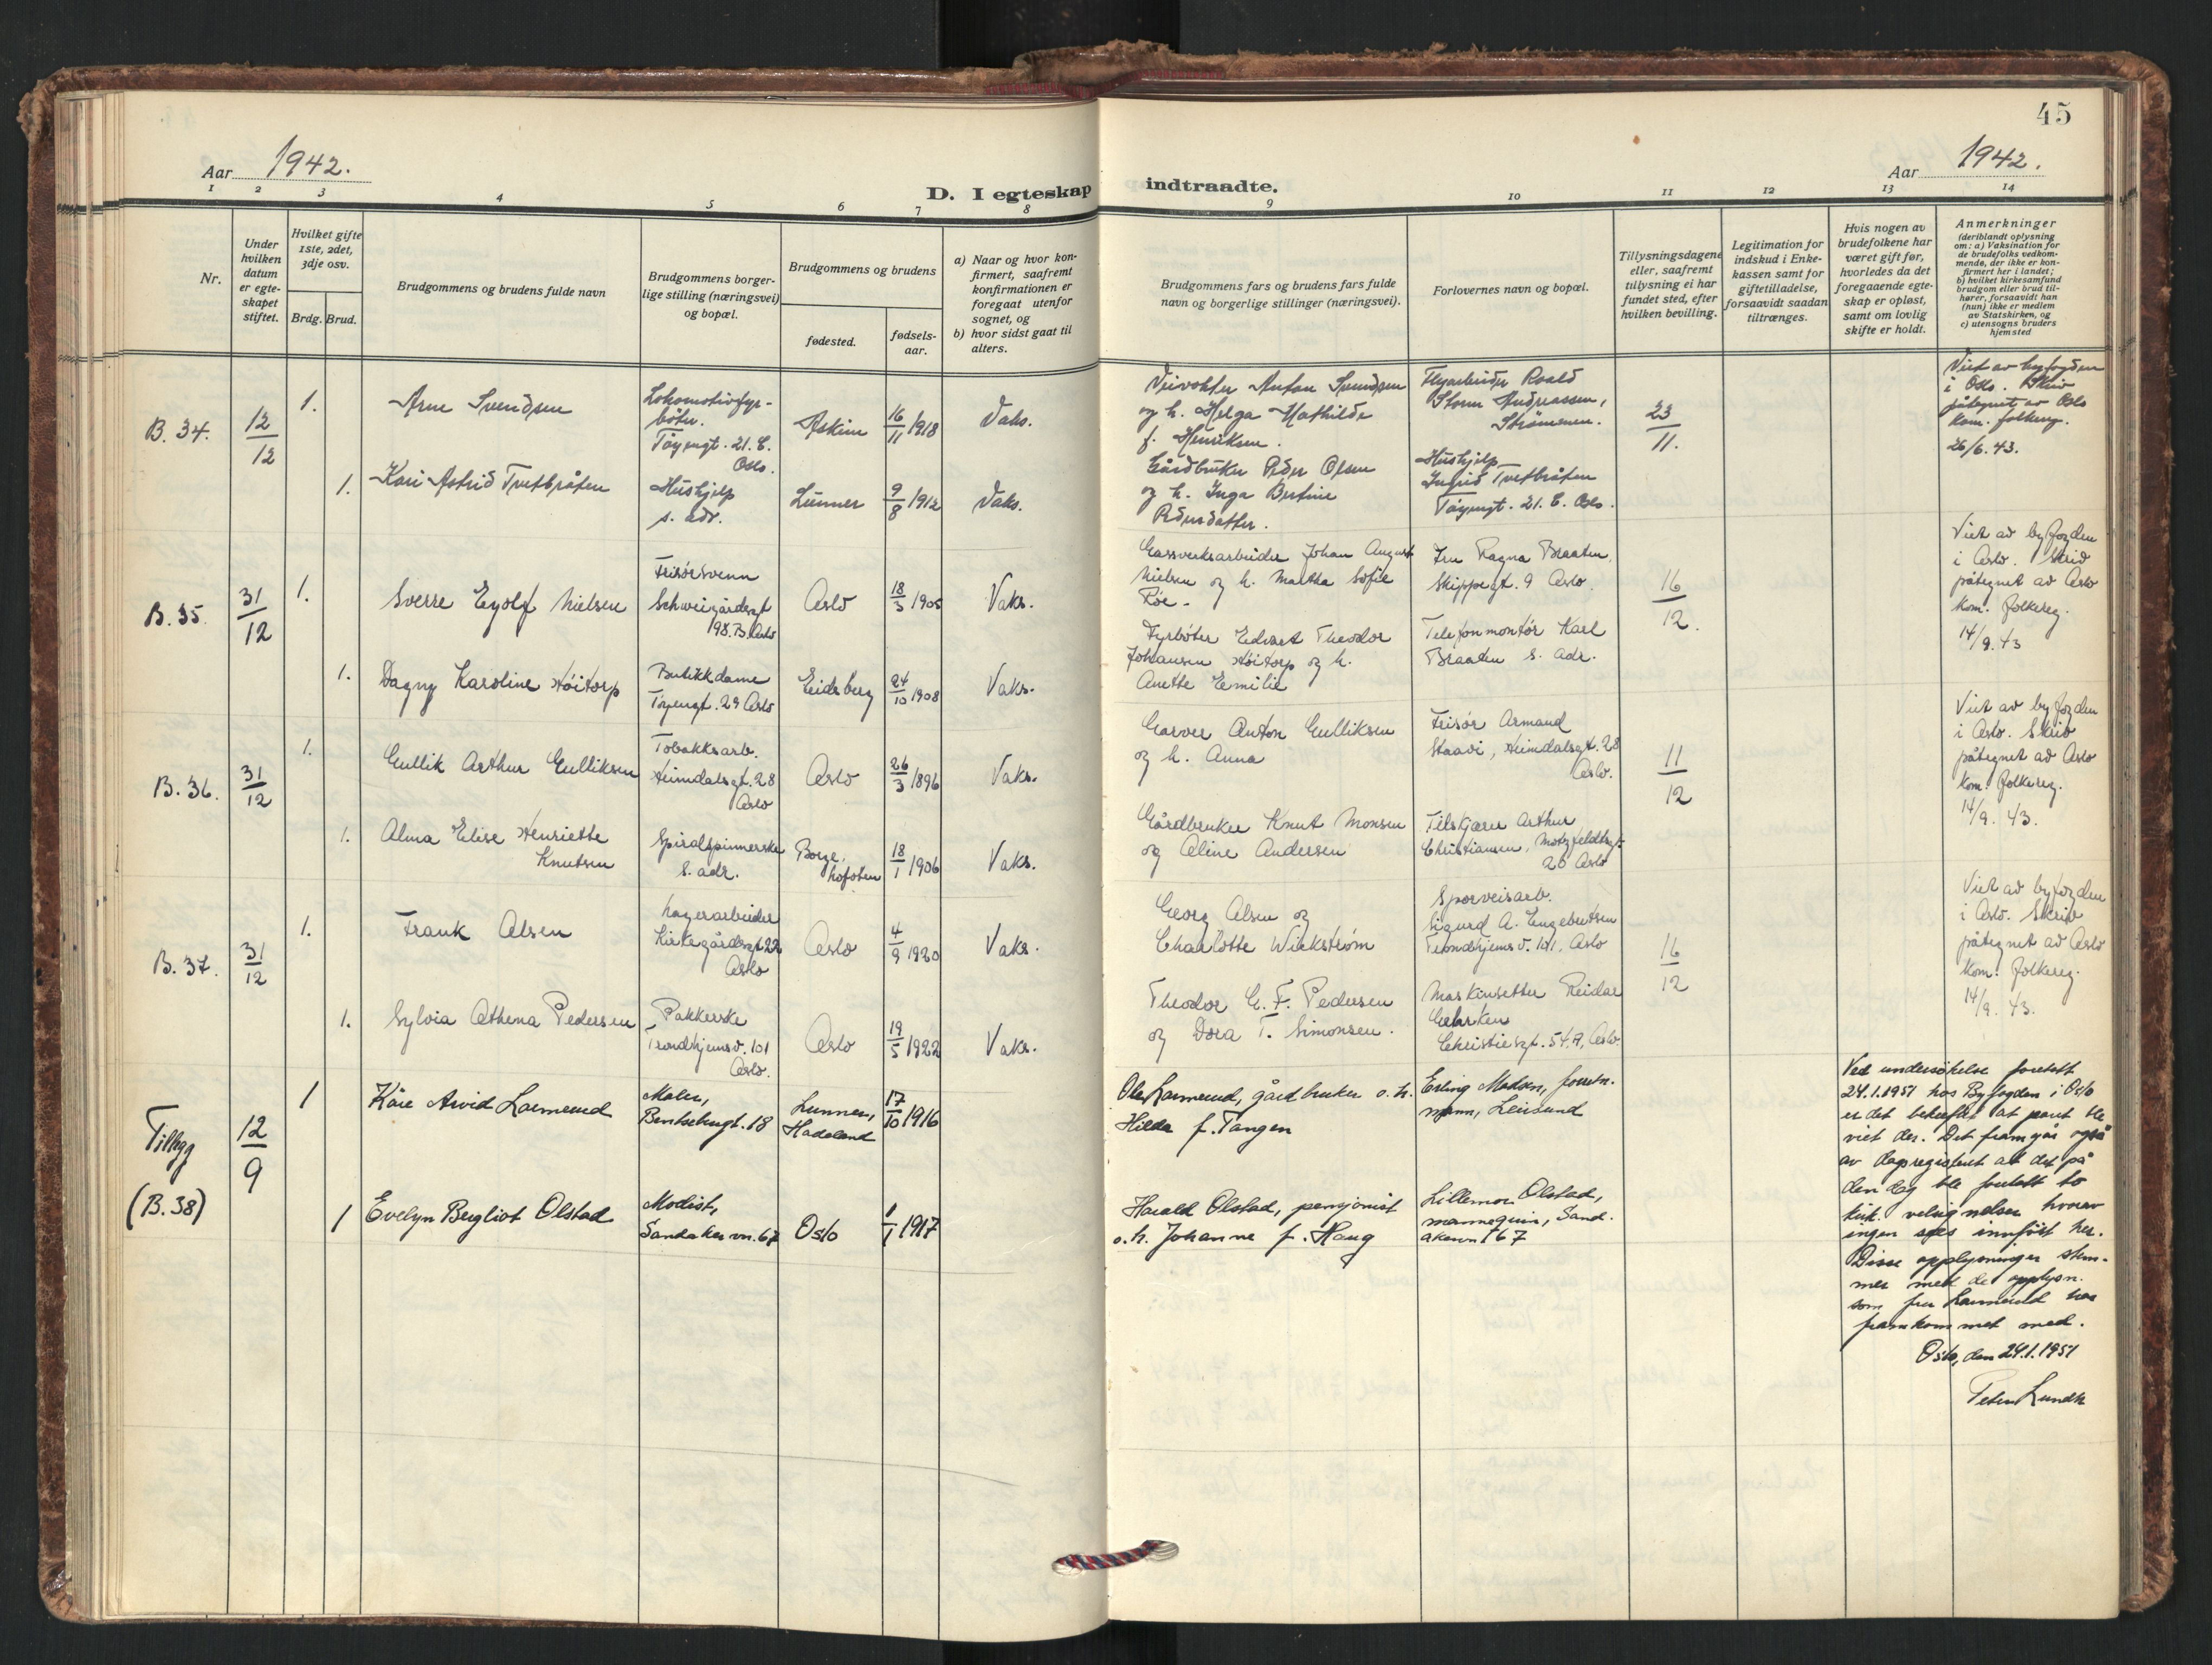 45
Aar 1942.
Aar 1942.
D. I egteskap indtraadte.
1 2 3 4 5 6 7 8 9 10 11 12 13 14
Nr.
Under hvilken datum er egte-skapet stiftet.
Hvilket gifte 1ste, 2det, 3dje osv.
Brdg. Brud.
Brudgommens og brudens fulde navn
Brudgommens borger-lige stilling (næringsvei) og bopæl.
Brudgommens og brudens
fødested.
fødsels-aar.
a) Naar og hvor kon-firmert, saafremt konfirmationen er foregaat utenfor sognet, og
b) hvor sidst gaat til alters.
Brudgommens fars og brudens fars fulde navn og borgerlige stillinger (næringsvei).
Forlovernes navn og bopæl.
Tillysningsdagene eller, saafremt tillysning ei har fundet sted, efter hvilken bevilling.
Legitimation for indskud i Enke-kassen samt for giftetilladelse, forsaavidt saadan tiltrænges.
Hvis nogen av brudefolkene har været gift før, hvorledes da det foregaaende egte-skap er opløst, samt om lovlig skifte er holdt.
Anmerkninger
(deriblandt oplysning om: a) Vaksination for de brudefolks vedkom-mende, der ikke er kon-firmert her i landet; b) hvilket kirkesamfund brudgom eller brud til-hører, forsaavidt han (hun) ikke er medlem av Statskirken, og c) utensogns bruders hjemsted
B. 34.
12/12
1.
Arne Svendsen
Lokomotivfyr-
bøter.
Tøyengt. 21. C.
Oslo.
Askim
16/11 1918
Vaks.
Veivokter Anton Svendsen
og h. Helga Mathilde
f. Henriksen.
Flyarbeider Roald
Storm Andreassen,
Strømmen.
23/11.
Viet av byfogden
i Oslo. Skriv
påtegnet av Oslo
Kom. folkereg.
26/6. 43.
1.
Kari Astrid Tvetbråten
Hushjelp
s. adr.
Lunner
9/8 1912
Vaks.
Gårdbruker Peder Olsen
og h. Inga Bertine
Pedersdatter.
Hushjelp
Ingrid Tvetbråten
Tøyengt. 21. C. Oslo.
B. 35.
31/12
1.
Sverre Eyolf Nielsen
Frisørsvenn
Schweigårdsgt
198. B. Oslo
Oslo
18/3 1905
Vaks.
Gassverksarbeider Johan August
Nielsen og h. Martha Sofie
Røe.
Fru Ragna Braaten,
Skippergt. 9 Oslo.
16/12.
Viet av byfogden
i Oslo. Skriv
påtegnet av Oslo
Kom. folkereg.
14/9. 43
1.
Dagny Karoline Høitorp
Butikkdame
Tøyengt. 29 Oslo
Eidsberg
24/10 1908
Vaks.
Fyrbøter Edvart Theodor
Johansen Høitorp og h.
Anette Emilie
Telefonmontør Karl
Braaten s. adr.
B. 36.
31/12
1.
Gullik Arthur Gulliksen
Tobakksarb.
Heimdalsgt. 28
Oslo
Oslo
26/3 1896
Vaks.
Garver Anton Gulliksen
og h. Anna
Frisør Armand
Staavi, Heimdalsgt. 28
Oslo.
11/12
Viet av byfogden
i Oslo. Skriv
påtegnet av Oslo
Kom. folkereg.
14/9. 43.
1.
Alma Elise Henriette
Knutsen
Spiralspinnerske
s. adr.
Borge,
Lofoten
18/1 1906
Vaks.
Gårdbruker Knut Monsen
og Aline Andersen
Tilskjærer Arthur
Christiansen, Motzfeldtsgt.
20 Oslo
B. 37.
31/12
1.
Frank Olsen
Lagerarbeider
Kirkegårdsgt 22
Oslo
Oslo
4/9 1920
Vaks.
Georg Olsen og
Charlotte Wickstrøm
Sporveisarb.
Sigurd A. Engebretsen
Trondhjemsv. 101, Oslo
16/12
Viet av byfogden
i Oslo. Skriv
påtegnet av Oslo
Kom. folkereg.
14/9. 43.
1.
Sylvia Athena Pedersen
Pakkerske
Trondhjemsv. 101
Oslo.
Oslo
19/5 1922
Vaks.
Theodor G. F. Pedersen
og Dora T. Simonsen.
Maskinsetter Reidar
Christiesgt. 54. A, Oslo.
Tillegg
(B. 38)
12/9
1
Kåre Arvid Larmerud
Maler,
Bentsebrugt. 18
Lunner,
Hadeland
17/10 1916
Ole Larmerud, gårdbruker o. h.
Hilda f. Tangen
Erling Madsen, forretn.
mann, Leirsund
Ved undersøkelse foretatt
24.1.1951 hos Byfogden i Oslo
er det bekreftet at paret ble
viet der. Det framgår også
av dagregisteret at det på
den dag ble foretatt to
kirk. velsignelser hvorav
ingen sees innført her.
Disse opplysninger stem-
mer med de opplysn.
som fru Larmerud har
framkommet med.
Oslo, den 24.1.1951
Peter Lundh
1
Evelyn Bergliot Olstad
Modist,
Sandakervn. 67
Oslo
1/1 1917
Harald Olstad, pensjonist
o. h. Johanne f. Haug
Lillemor Olstad,
mannequin, Sand-
akervn 67